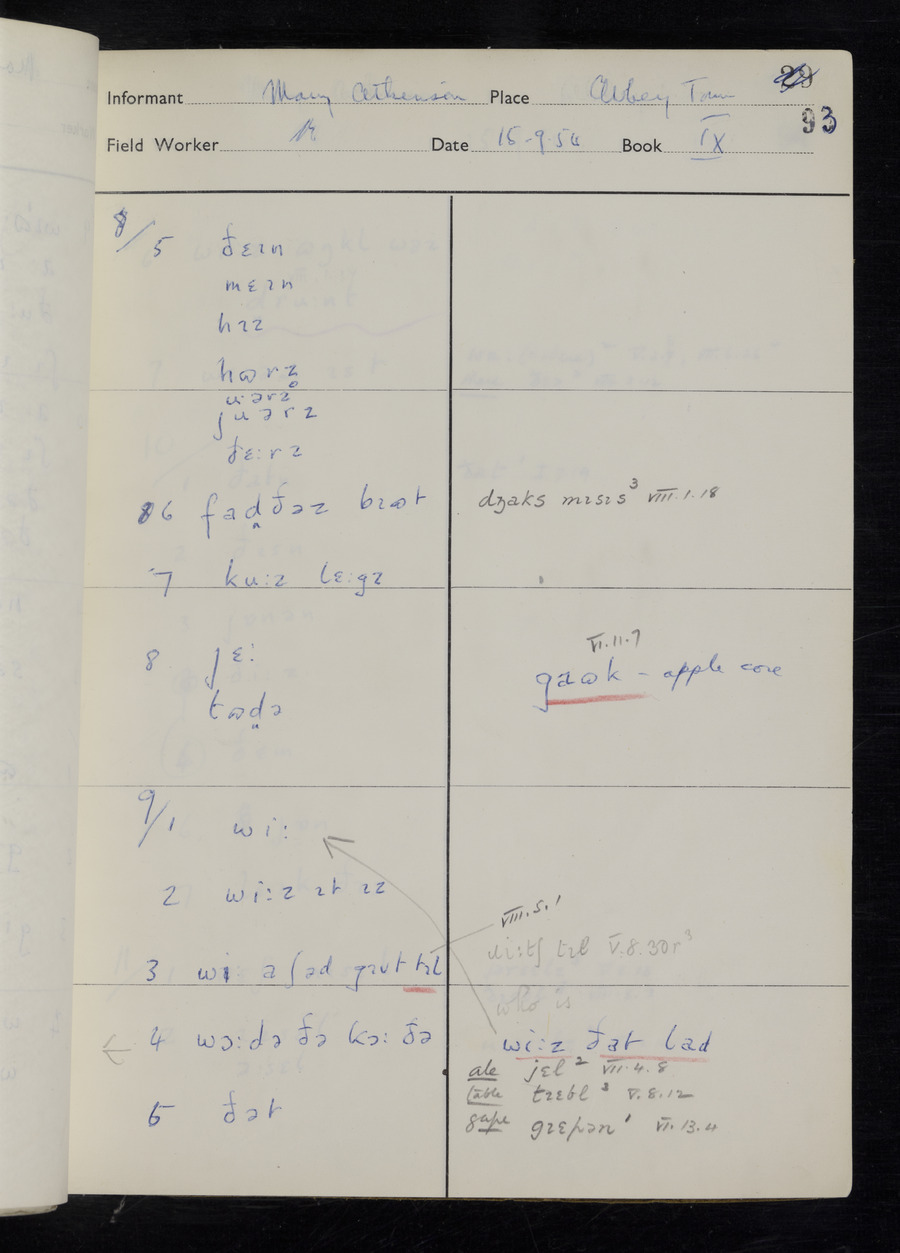 29
Informant Mary Atkinson Place Abbey Town
93
Field Worker Date 15-9-54 Book IX
8/5 ðɛɪn
mɛɪn
hɪz
hɷrz̥
uərz
juərz
ðɛːrz
6 fad̪ðəz bɪət
dʒaks mɪsɪs³ VIII.1.18
7 kuːz lɛːgz
8 jɛː
tɷd̪ə
VI.11.7
gaɷk - apple core
9/1 wiː
2 wiːz ɪt ɪz
VIII.5.1
wiːtʃ tɪl V.8.30r³
3 wi a ʃəd gɪvt tɪl
who is
4 wɔːdə ðə kɔː ðə
wiːz ðat lad
ale jɛl² VII.4.8
table tɪɛbl³ V.8.12
5 ðat
gape gɪɛpən¹ VI.13.4